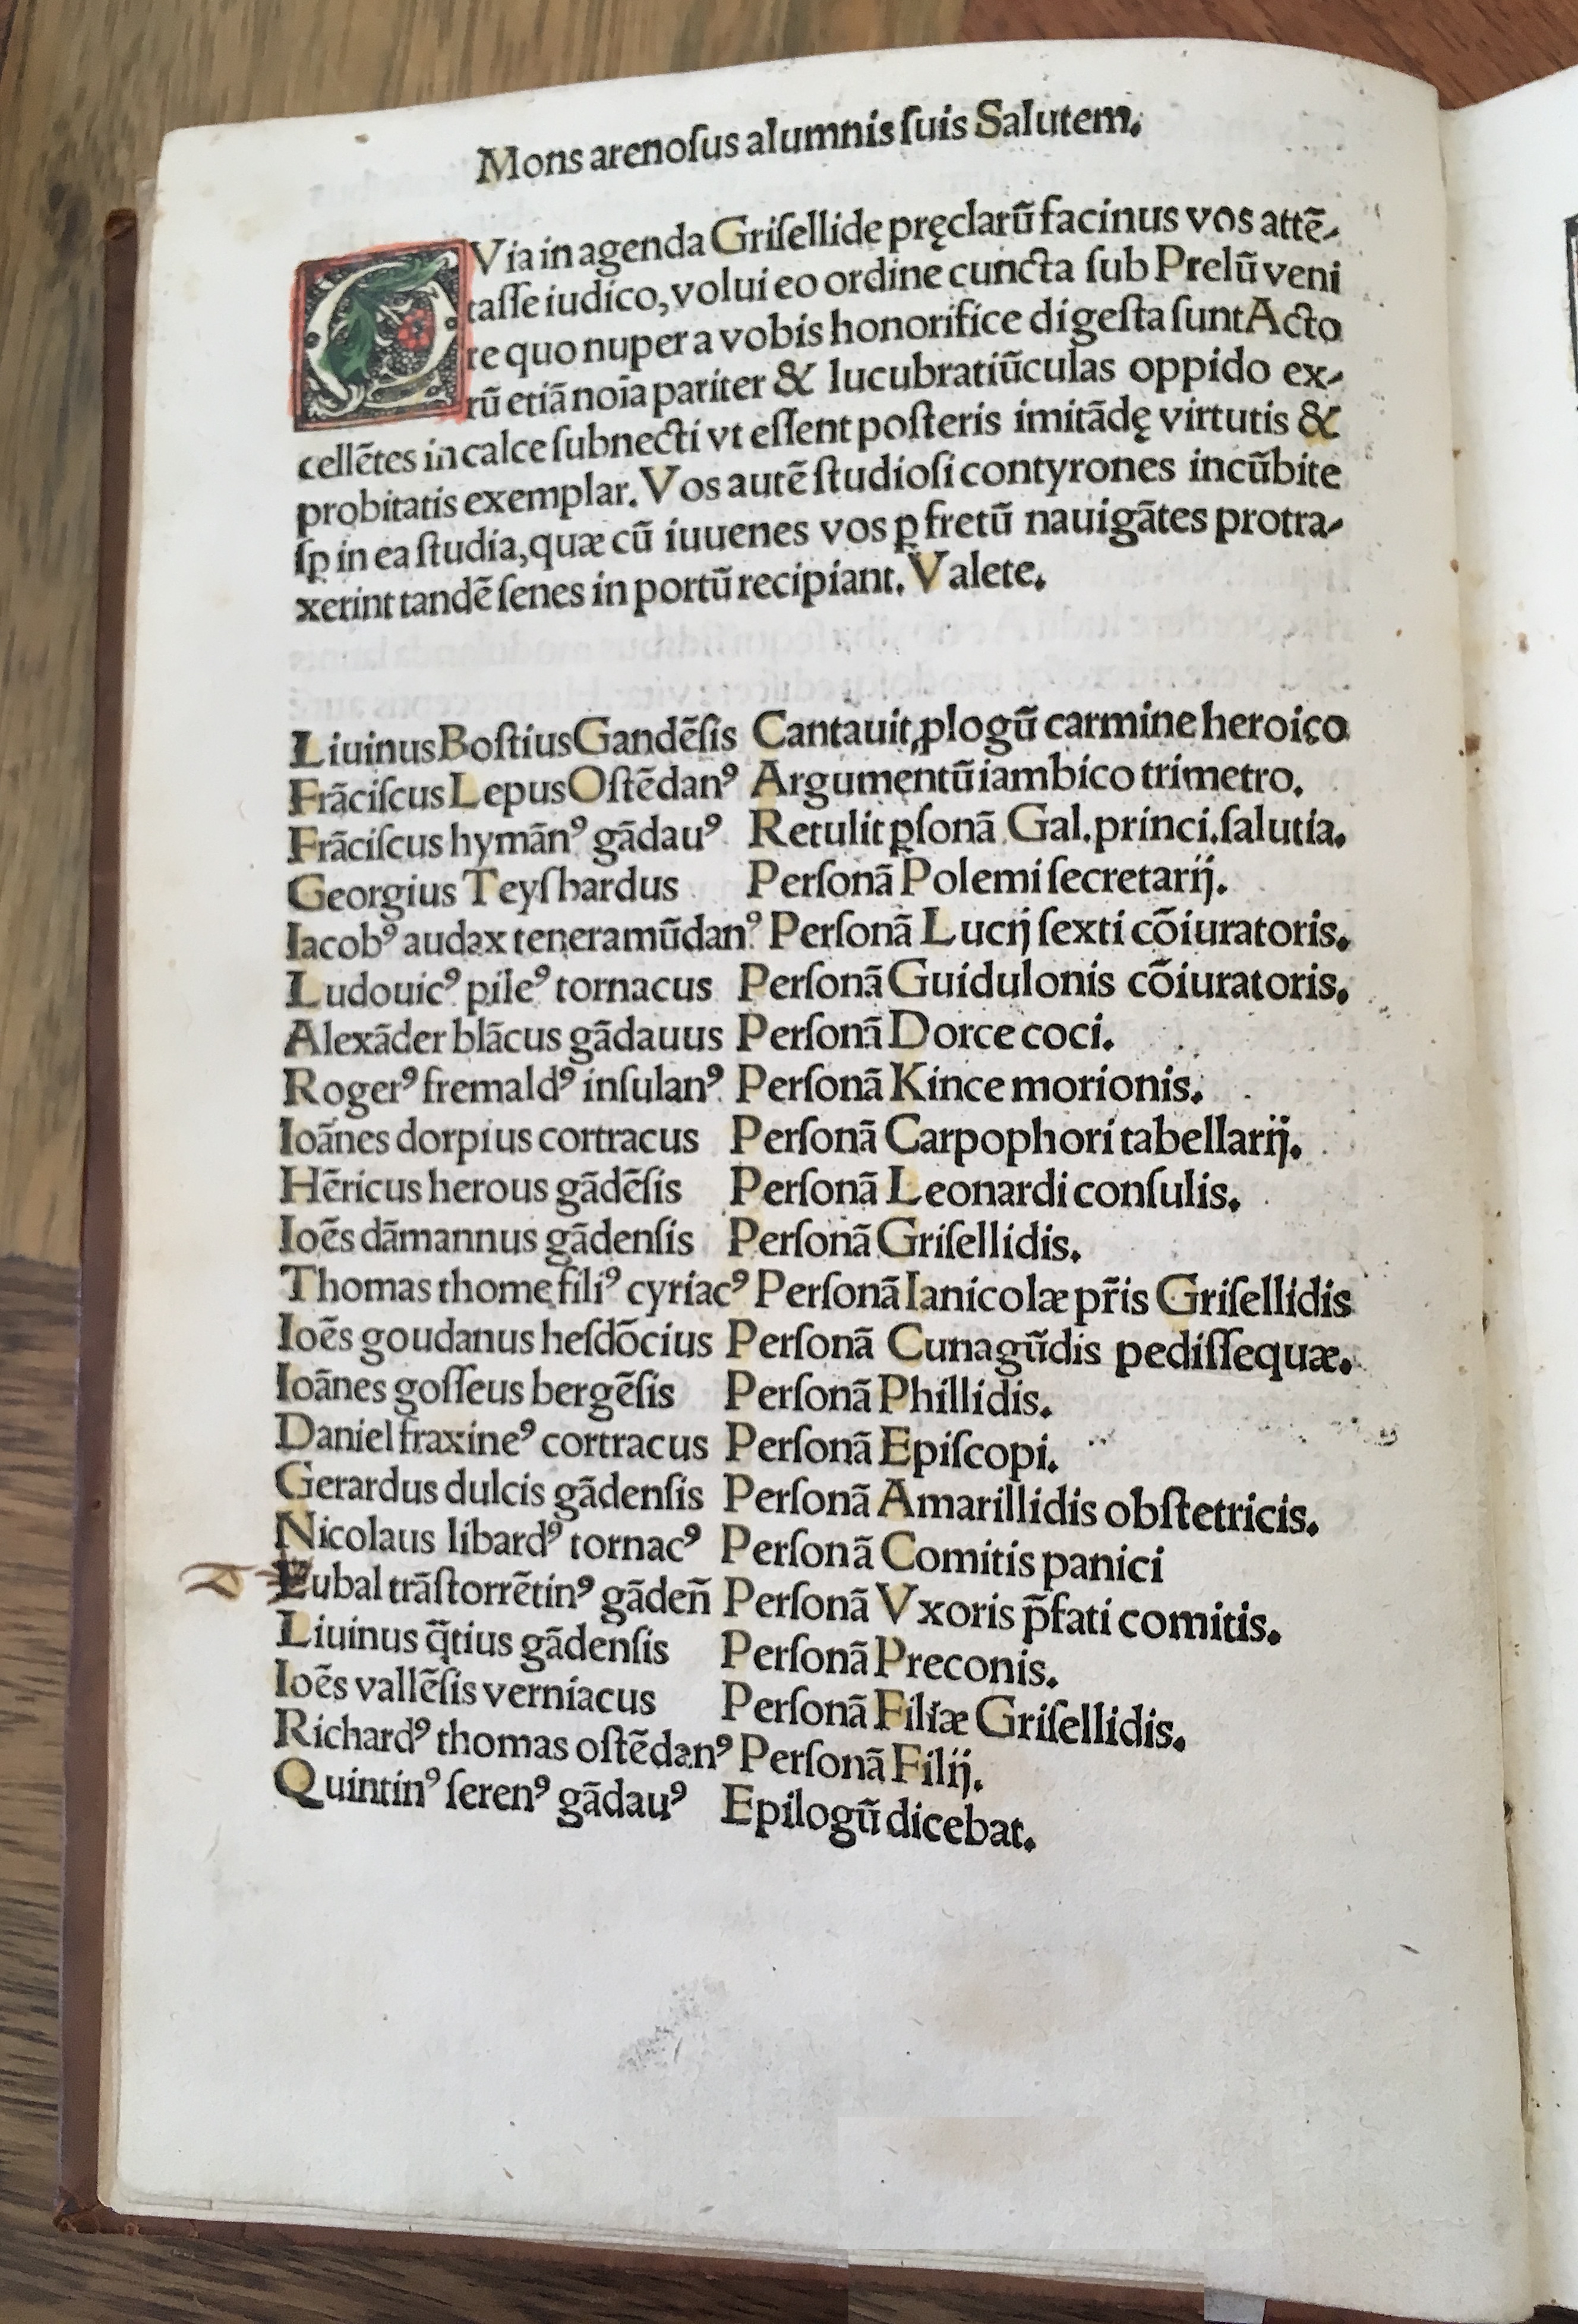 Mons arenoſus alumnis ſuis Salutem.
QVia in agenda Griſellide pręclarũ facinus vos attẽ-
taſſe iudico, volui eo ordine cuncta ſub Prelũ veni
re quo nuper a vobis honorifice digeſta ſunt Acto
rũ etiã noĩa pariter & lucubratiũculas oppido ex-
cellẽtes in calce ſubnecti vt eſſent poſteris imitãdę virtutis &
probitatis exemplar. Vos autẽ ſtudioſi contyrones incũbite
ſꝑ in ea ſtudia, quæ cũ iuuenes vos ꝑ fretũ nauigãtes protra-
xerint tandẽ ſenes in portũ recipiant. Valete.
Liuinus Boſtius Gandẽſis Cantauit ꝓlogũ carmine heroico
Frãciſcus Lepus Oſtẽdanꝰ Argumentũ iambico trimetro.
Frãciſcus hymãnꝰ gãdauꝰ Retulit ꝑſonã Gal. princi. ſalutia.
Georgius Teyſbardus Perſonã Polemi ſecretarij.
Iacobꝰ audax teneramũdanꝰ Perſonã Lucij ſexti cõiuratoris.
Ludouicꝰ pileꝰ tornacus Perſonã Guidulonis cõiuratoris.
Alexãder blãcus gãdauus Perſonã Dorce coci.
Rogerꝰ fremaldꝰ inſulanꝰ Perſonã Kince morionis.
Ioãnes dorpius cortracus Perſonã Carpophori tabellarij.
Hẽricus herous gãdẽſis Perſonã Leonardi conſulis.
Ioẽs dãmannus gãdenſis Perſonã Griſellidis.
Thomas thomę filiꝰ cyriacꝰ Perſonã Ianicolæ pr̃is Griſellidis
Ioẽs goudanus heſdõcius Perſonã Cunagũdis pediſſequæ.
Ioãnes goſſeus bergẽſis Perſonã Phillidis.
Daniel fraxineꝰ cortracus Perſonã Epiſcopi.
Gerardus dulcis gãdenſis Perſonã Amarillidis obſtetricis.
Nicolaus libardꝰ tornacꝰ Perſonã Comitis panici
Eubal trãſtorrẽtinꝰ gãdeñ Perſonã Vxoris p̃fati comitis.
Liuinus q̃tius gãdenſis Perſonã Preconis.
Ioẽs vallẽſis verniacus Perſonã Filiæ Griſellidis.
Richardꝰ thomas oſtẽdanꝰ Perſonã Filij.
Quintinꝰ ſerenꝰ gãdauꝰ Epilogũ dicebat.